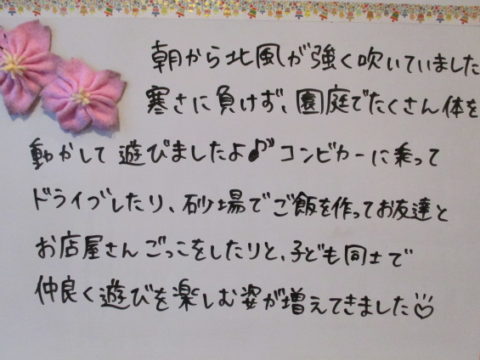 朝から北風が強く吹いていました
寒さに負けず、園庭でたくさん体を
動かして遊びましたよ♪コンビカーに乗って
ドライブしたり、砂場でご飯を作ってお友達と
お店屋さんごっこをしたりと、子ども同士で
仲良く遊びを楽しむ姿が増えてきました